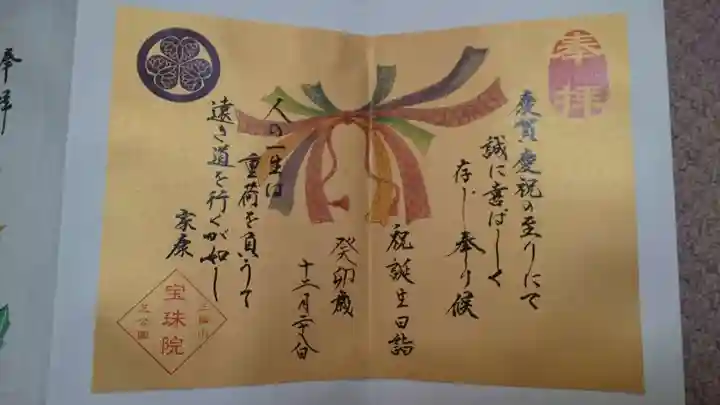 奉拝
慶賀慶祝の至りにて
誠に喜ばしく
存じ奉り候
祝誕生日詣
癸卯歳
人の一生は
重荷を負うて
遠き道を行くが如し
家康
三縁山
宝珠院
芝公園
奉拝